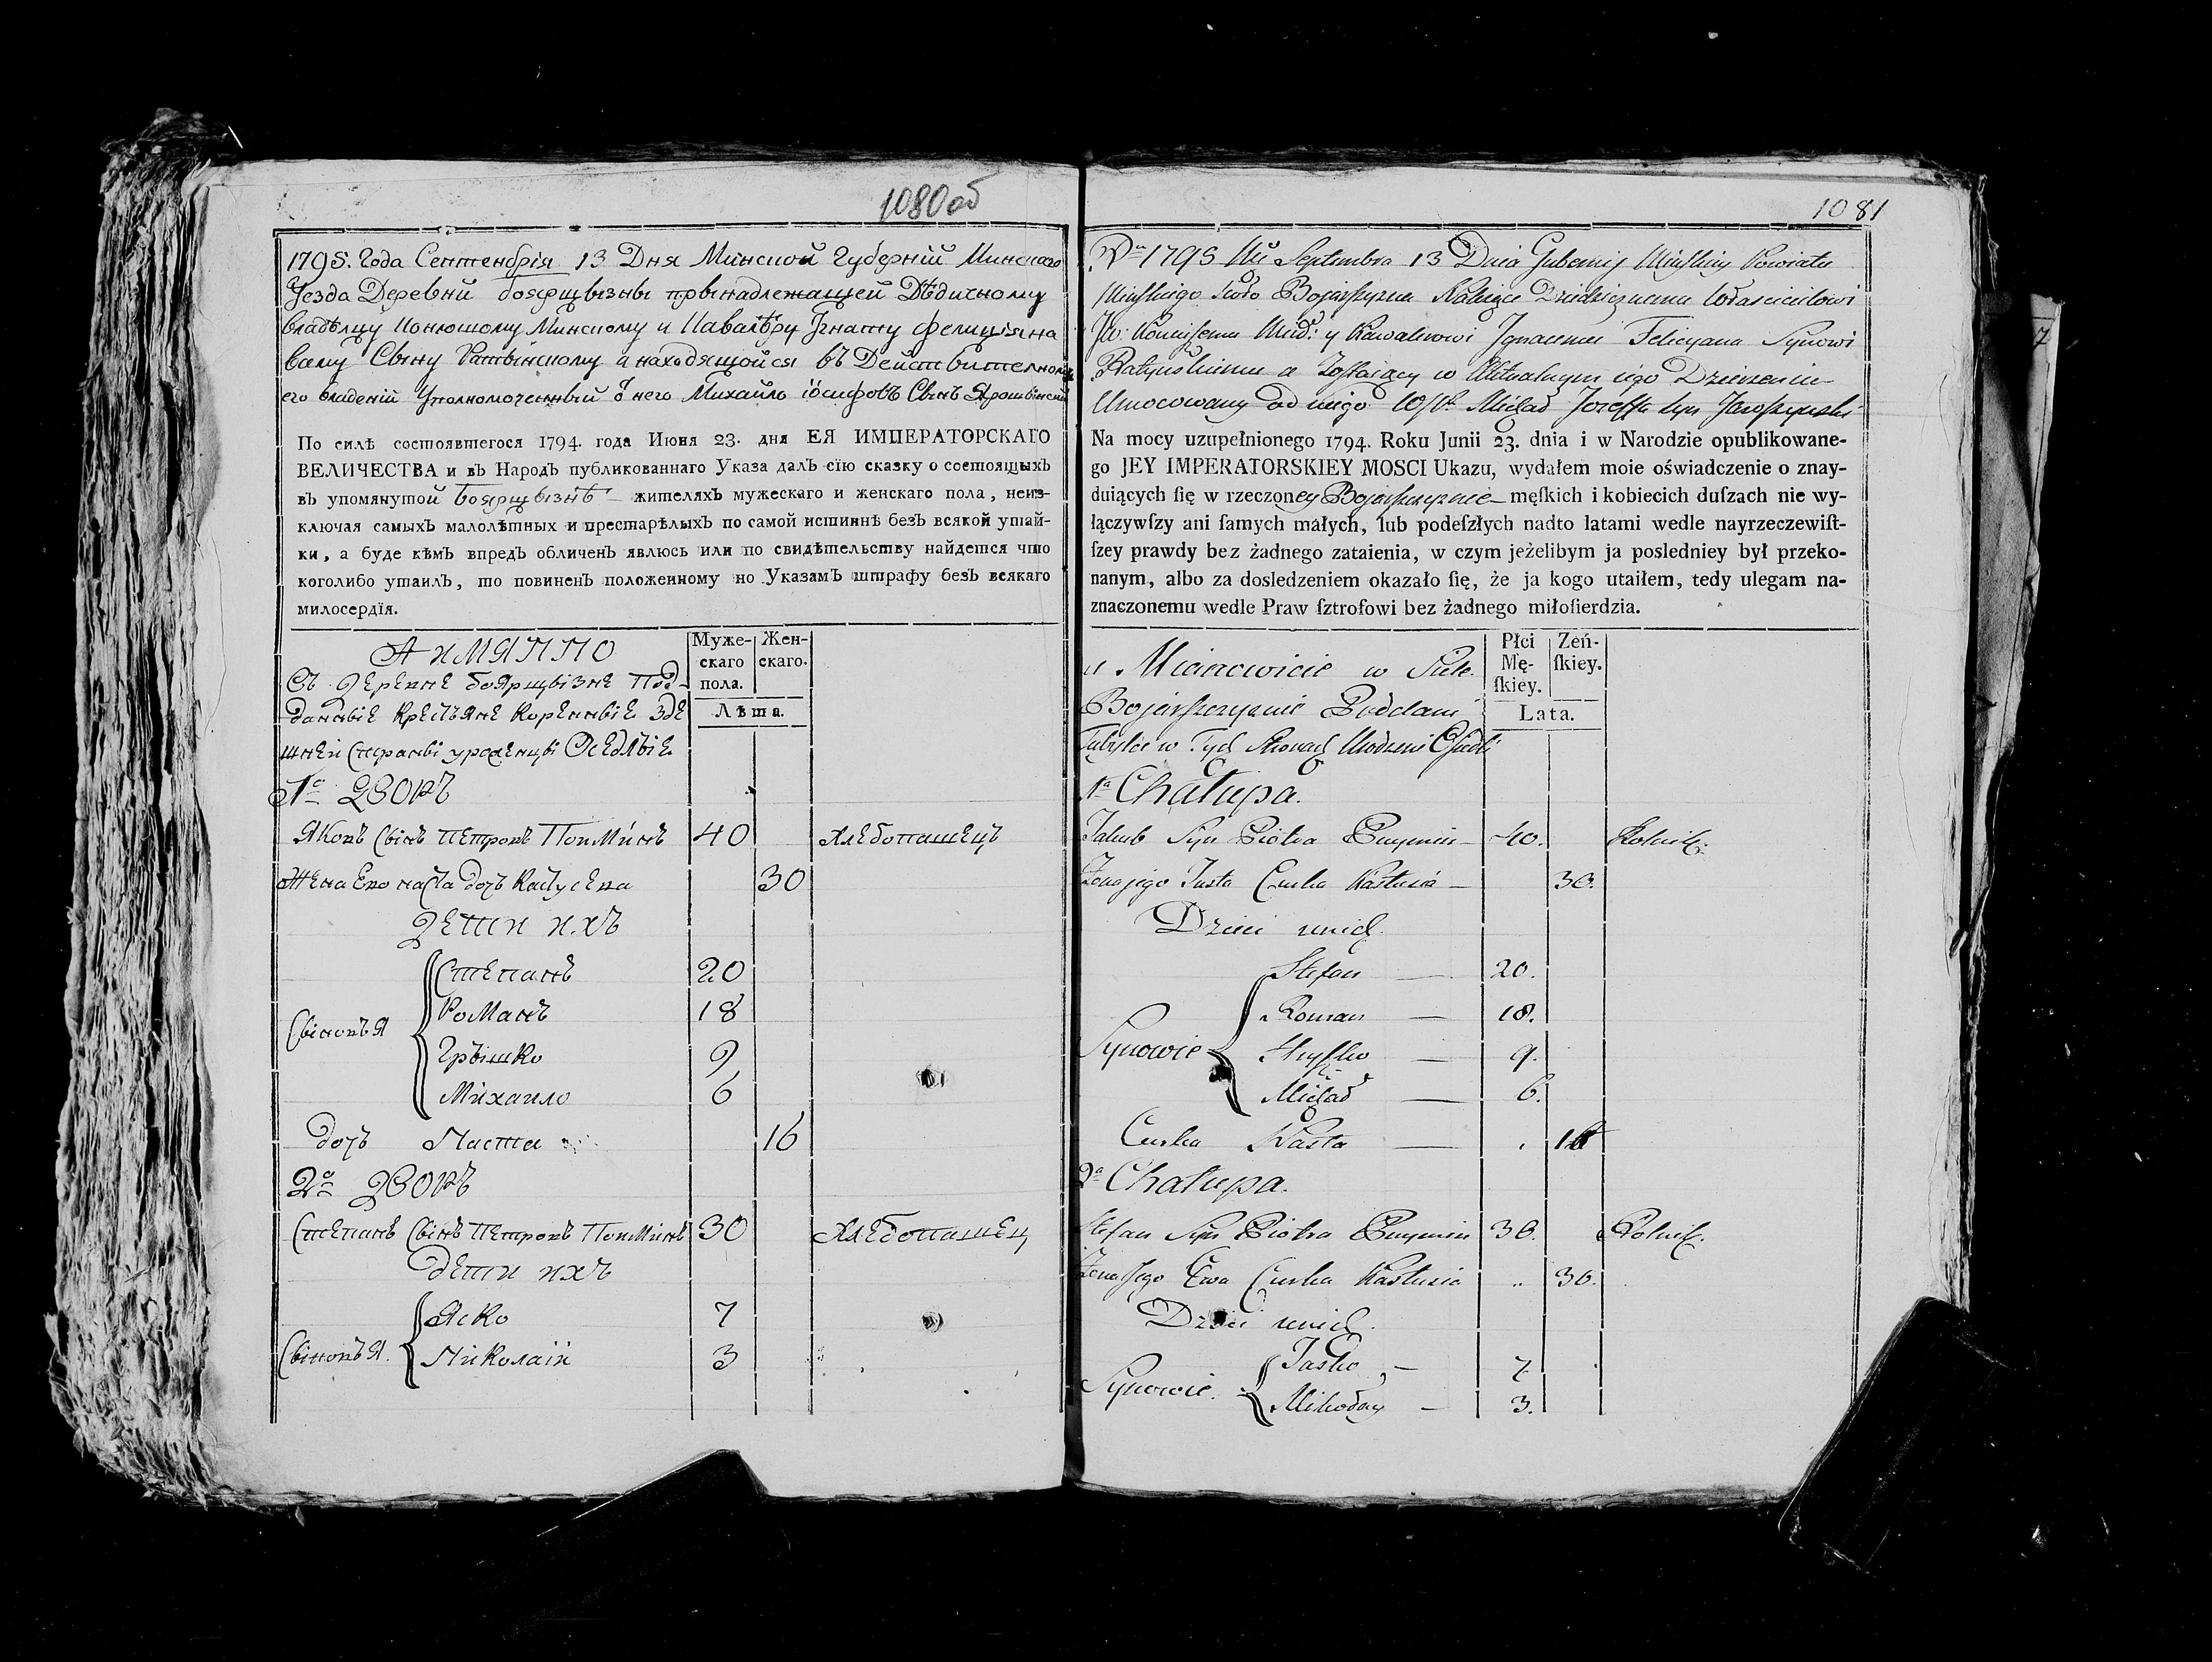 1080об
1795. Года Септенбрія 13 Дня Минской Губерніи Минскаго
Уезда Деревни боярщызны прынадлежащей Дѣдичному
владѣлцу Конюшому Минскому и Кавалѣру Игнату фелиціяно
вому Сыну Ратынскому а находящойся въ Действителном
его владеніи Уполномоченный о него Михайло іосифовъ Сынъ
По силѣ состоявшегося 1794. года Июня 23. дня ЕЯ ИМПЕРАТОРСКАГО
ВЕЛИЧЕСТВА и въ Народъ публикованнаго Указа далъ сїю сказку о состоящыхъ
въ упомянутой боярщызнѣ жителяхъ мужескаго и женскаго пола, неиз-
ключая самыхъ малолѣтныхъ и престарѣлыхъ по самой истиннѣ безъ всякой утай-
ки, а буде кѣмъ впредъ обличенъ явлюсь или по свидѣтельству найдется что
коголибо утаилъ, то повиненъ положенному но Указамъ штрафу безъ всякаго
милосердїя.
А имянно
Муже-скаго пола. Жен-скаго.
Лѣта.
Съ деревне боярщизне Под-
даные крестьяне коренные зде
шней страны уроженцы Оседлые
1о дворъ
Яковъ Сынъ Петровъ 40 хлебопашецъ
Жена Ево наста дочъ 30
дети ихъ
Сыновья
Степанъ 20
Романъ 18
Грышко 9
Михайло 6
дочъ Наста 16
2о дворъ
Степанъ Сынъ Петровъ 30 хлебопашец
дети ихъ
Сыновья.
Яско 7
Николай 3
1081
1795 Septembra 13 Dnia Gubernij Minskiey Powiatu
Minskiego Sioło Bojarszyzna Dziedzicznemu Właścicielowi
y Kawalerowi Ignacemu Felicyana Synowi
Ratyńskiemu a w Aktualnym iego Dzierzeniu
Umocowany od niego Michał Jozeffa Syn
Na mocy uzupełnionego 1794. Roku Junii 23. dnia i w Narodzie opublikowane-
go JEY IMPERATORSKIEY MOSCI Ukazu, wydałem moie oświadczenie o znay-
duiących ſię w rzeczoney Bojarszczyznie męſkich i kobiecich duſzach nie wy-
łączywſzy ani ſamych małych, lub podeſzłych nadto latami wedle nayrzeczewiſt-
ſzey prawdy bez żadnego zataienia, w czym jeżelibym ja posledniey był przeko-
nanym, albo za dosledzeniem okazało ſię, że ja kogo utaiłem, tedy ulegam na-
znaczonemu wedle Praw ſztrofowi bez żadnego miłoſierdzia.
a Mianowicie w Siele
Płci Mę-ſkiey. Zeń-ſkiey.
Lata.
Bojarszczyznie Poddani
w Tych Stronach Urodzeni Osiedli
1a Chałupa.
Jakub Syn Piotra 40. Rolnik.
Zona jego Nasta Curka 30.
Dzieci unich
Synowie
Stefan 20.
Roman 18.
Hryszko 9.
Michał 6.
Curka Nasta 16
2a Chałupa.
Stefan Syn Piotra 30. Rolnik.
Zona Jego Ewa Curka 30.
Dzieci unich.
Synowie.
Jasko 7
Mikołay 3.